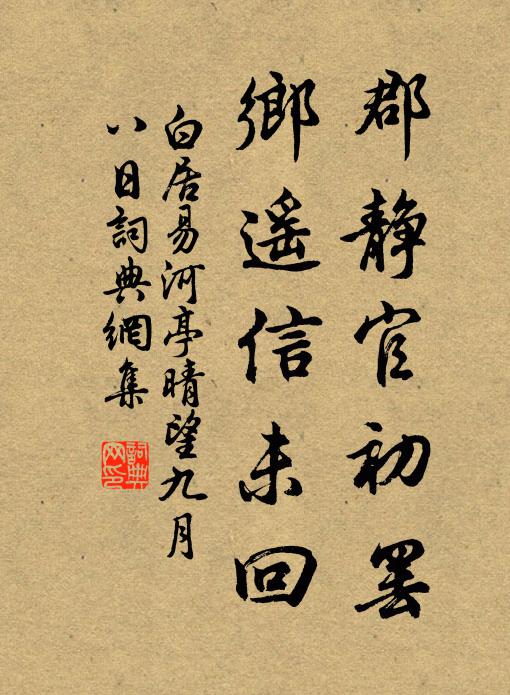 郡静官初罢
鄉遥信未回
白居易河亭晴望九月
八日詞典網集
詞典网印